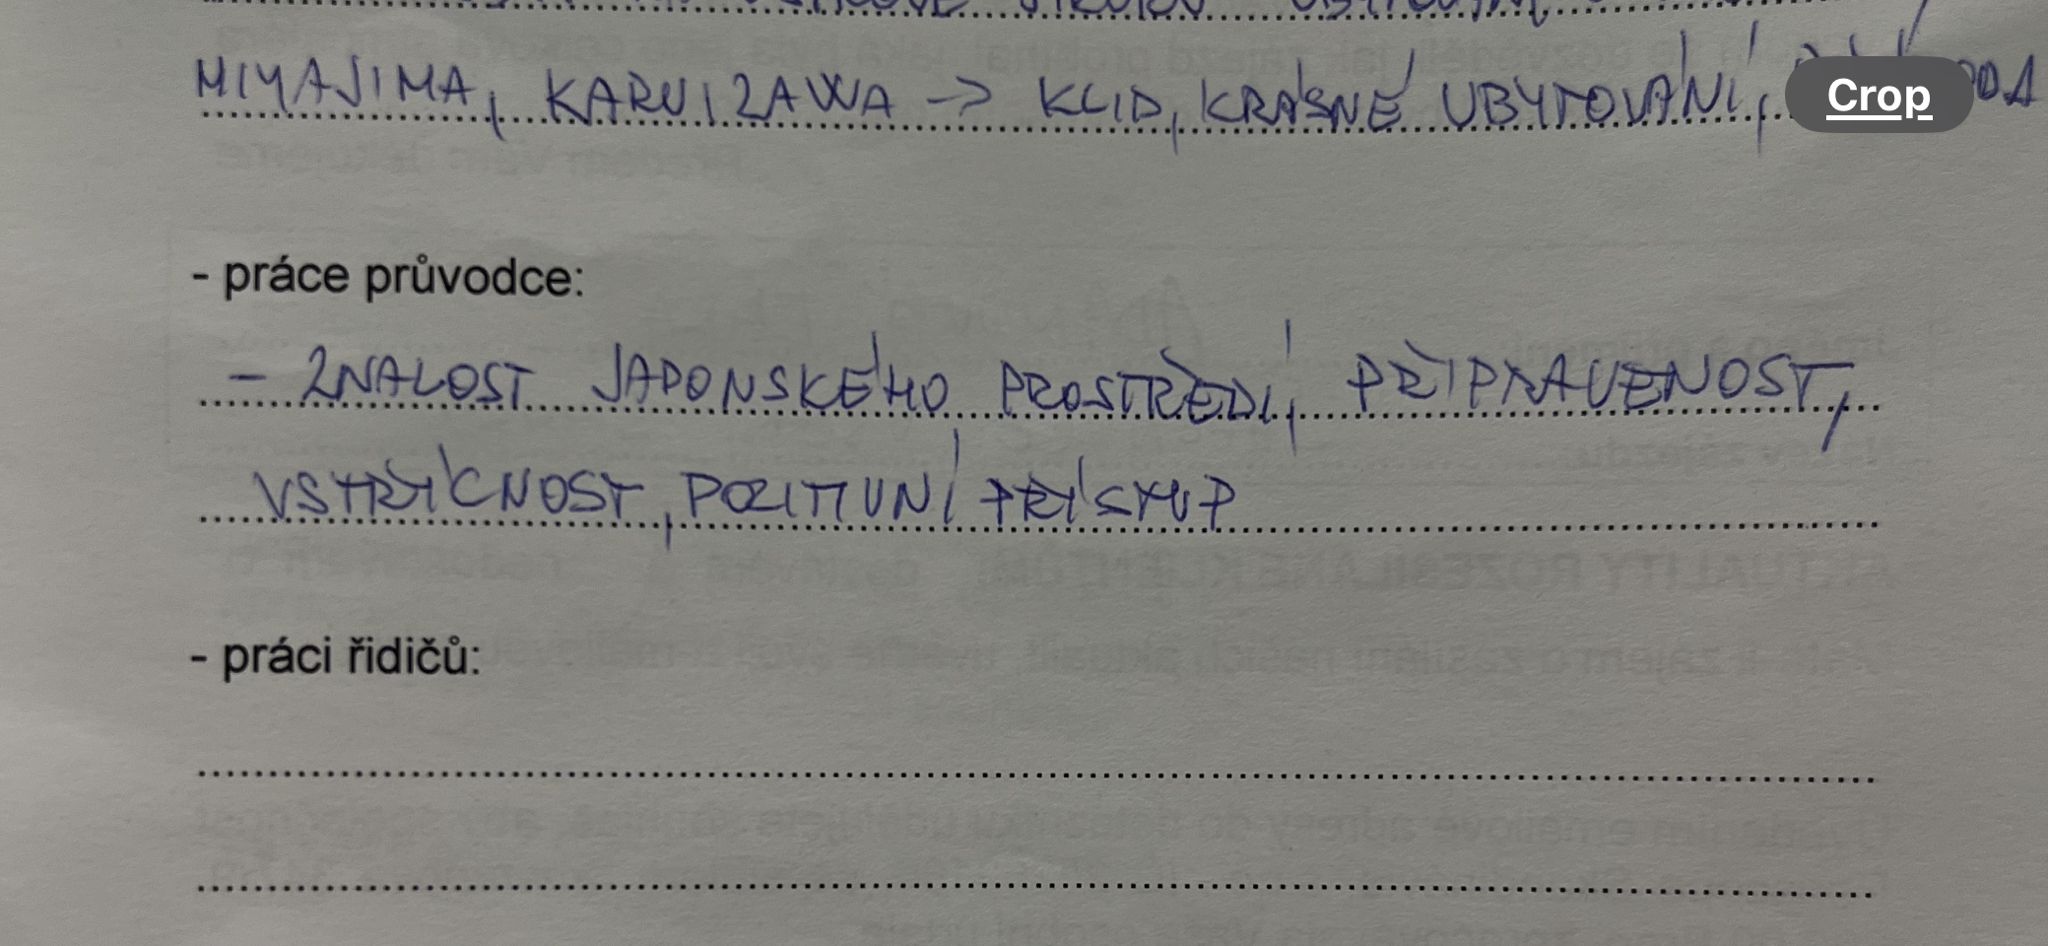 MIYAJIMA, KARUIZAWA -> KLID, KRÁSNÉ UBYTOVÁNÍ,
Crop
- práce průvodce:
- ZNALOST JAPONSKÉHO PROSTŘEDÍ, PŘIPRAVENOST,
VSTŘÍCNOST, POZITIVNÍ PŘÍSTUP
- práci řidičů: